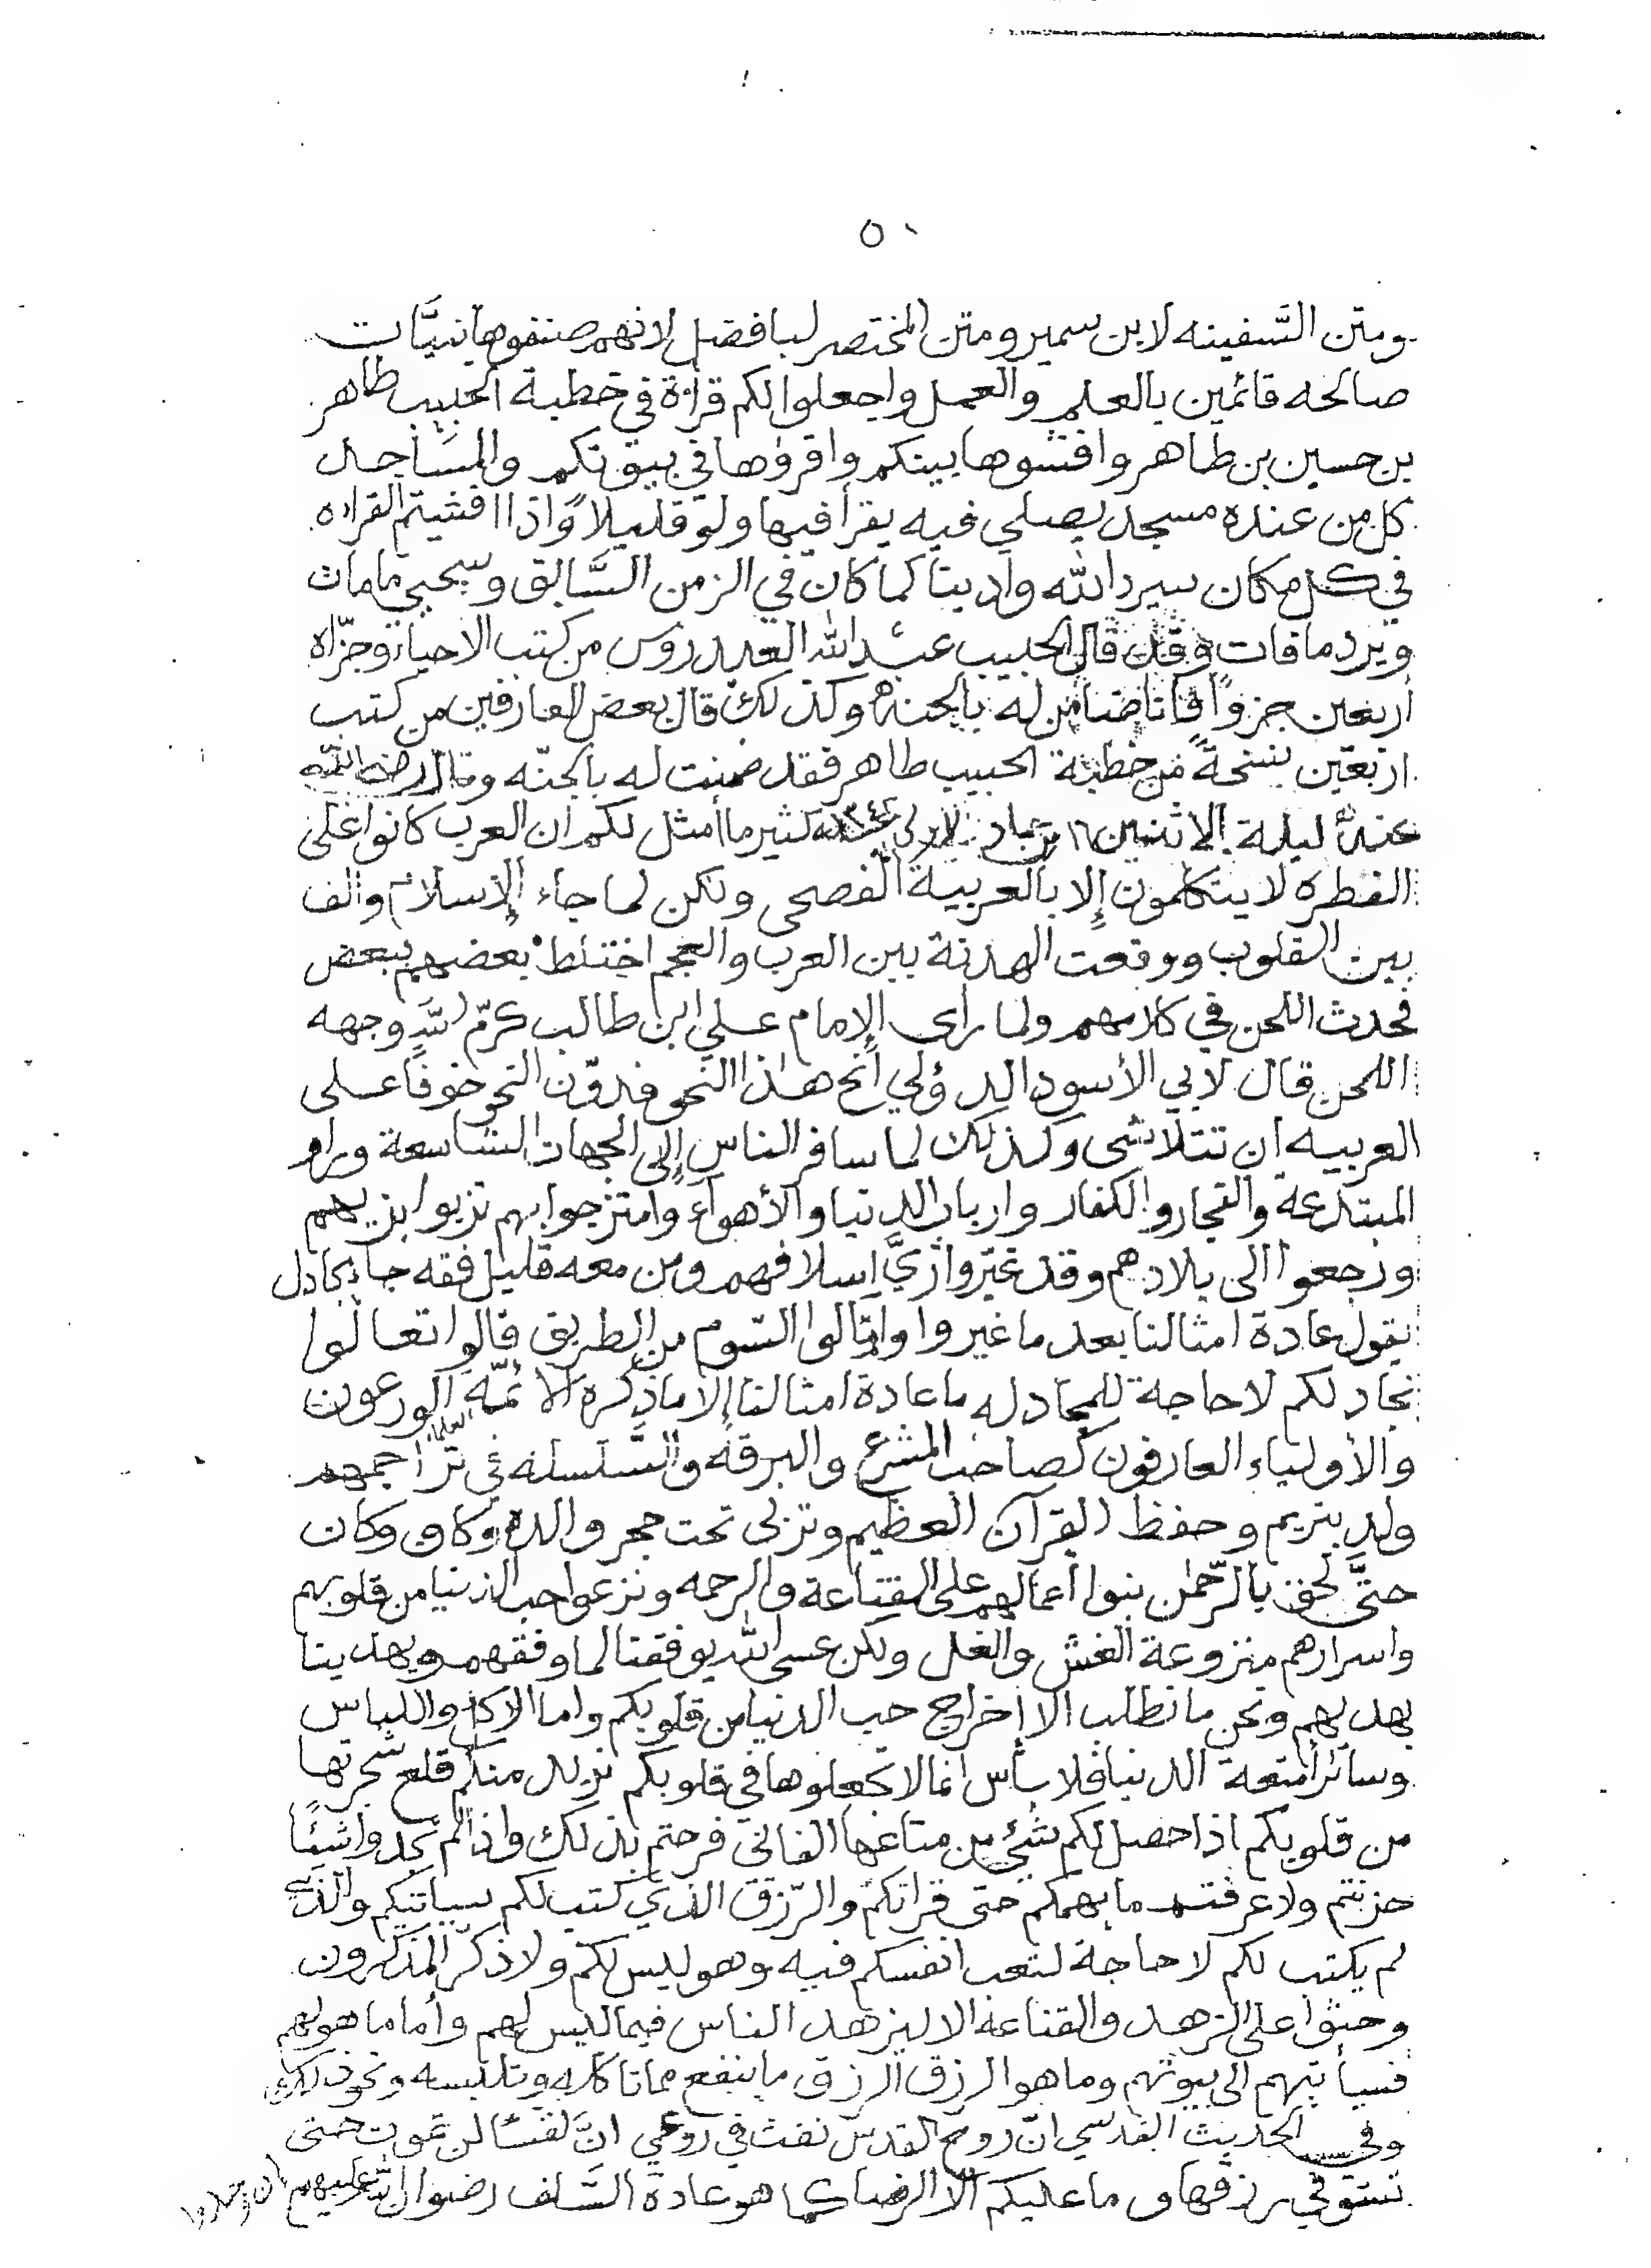 ٥٠
ومتن السَّفينه لابن سمير ومتن المختصر لبافضل لانهم صنفوها بنيَّات
صالحه قائمين بالعلم والعمل واجعلوا لكم قرأة في خطبة الحبيب طاهر
بن حسين بن طاهر وافشوها بينكم واقرؤها في بيوتكم والمساجد
كل من عنده مسجد يصلي فيه يقرأ فيها ولو قليلاً واذا افشيتم القراءه
في كل مكان سيرد الله وادينا كما كان في الزمن السَّابق وسيحيي مامات
ويرد مافات وقد قال الحبيب عبد الله العيدروس من كتب الاحياء وجزّاه
أربعين جزوًا فأنا ضامن له بالجنه وكذلك قال بعض العارفين من كتب
اربعين نسخةً من خطبة الحبيب طاهر فقد ضمنت له بالجنّه وقال رضي الله
عنه ليلة الاثنين ١٦ جماد الاولى كثير ما أمثل لكم ان العرب كانوا على
الفطره لا يتكلمون إلا بالعربية الفصحى ولكن لما جاء الإسلام والف
بين القلوب ووقعت الهدنة بين العرب والعجم اختلط بعضهم ببعض
فحدث اللحن في كلامهم ولما راى الإمام علي ابن طالب كرّم الله وجهه
اللحن قال لابي الأسود الدؤلي أنح هذا النحو فدوّن النحو خوفًا على
العربيه ان تتلاشى وكذلك لما سافر الناس إلى الجهات الشاسعة وراو
المبتدعة والتجار والكفار وارباب الدنيا والأهواء وامتزجوا بهم تزيوا بزيهم
ورجعوا الى بلادهم وقد غيّروا زيَّ اسلافهم ومن معه قليل فقه جاء يجادل
يقول عادة امثالنا بعد ما غيروا وامالوا السّوم من الطريق قالوا تعالوا
نجادلكم لاحاجة للمجادله ما عادة امثالنا إلا ماذكره الأئمّه الورعون
والأولياء العارفون كصاحب المشرع والبرقه والسَّلسله في تراجمهم العلماء
ولد بتريم وحفظ القرآن العظيم وتربى تحت حجر والده وكان وكان
حتَّى لحق بالرّحمٰن بنوا أعمالهم على القناعة والرحمه ونزعوا حب الدنيا من قلوبهم
واسرارهم منزوعة الغش والغل ولكن عسى الله يوفقنا لما وفقهم ويهدينا
بهديهم ونحن ما نطلب الا إخراج حب الدنيا من قلوبكم واما الاكل واللباس
وسائر أمتعة الدنيا فلا بأس انما لا تجعلوها في قلوبكم نريد منكم قلع شجرتها
من قلوبكم اذا حصل لكم شيء من متاعها الفاني فرحتم بذلك واذا لم تجدوا شئًا
حزنتم ولاعرفتم مايهمكم حتى قراتكم والرّزق الذي كتب لكم سياتيكم والّذي
لم يكتب لكم لاحاجة لتعب انفسكم فيه وهو ليس لكم ولا ذكّر المذكّرون
وحثوا على الزهد والقناعة الا ليزهد الناس فيما ليس لهم وأما ما هو لهم
فسيأتيهم الى بيوتهم وما هو الرزق الرزق ما ينفع مما تاكله وتلبسه ونحو ذلك
وفي الحديث القدسي انّ روح القدس نفث في روعي انَّ نفسًا لن تموت حتى
تستوفي رزقها وما عليكم الا الرضا كما هو عادة السَّلف رضوان الله عليهم